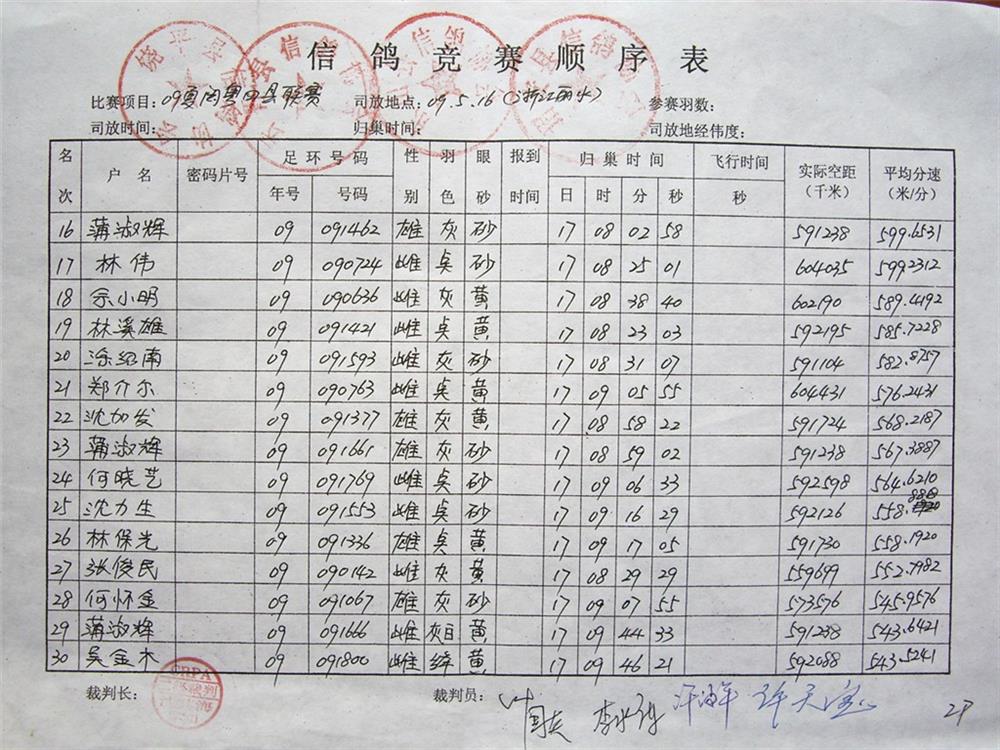 信鸽竞赛顺序表
比赛项目:09夏闽粤四县联赛 司放地点:09.5.16(浙江丽水) 参赛羽数:
司放时间: 归巢时间: 司放地经纬度:
名次 户名 密码片号 足环号码 性别 羽色 眼砂 报到时间 归巢时间 飞行时间 实际空距(千米) 平均分速(米/分)
年号 号码 日 时 分 秒 秒
16 蒲淑辉 09 091462 雄 灰 砂 17 08 02 58 591238 599.6531
17 林伟 09 090724 雌 吴 砂 17 08 25 01 604035 599.2312
18 余小明 09 090636 雌 灰 黄 17 08 38 40 602190 589.4192
19 林溪雄 09 091421 雌 吴 黄 17 08 23 03 592195 585.7228
20 涂绍南 09 091593 雌 灰 砂 17 08 31 07 591104 582.8757
21 郑介尔 09 090763 雌 吴 黄 17 09 05 55 604431 576.2431
22 沈加发 09 091377 雄 灰 黄 17 08 58 22 591724 568.2187
23 蒲淑辉 09 091661 雄 灰 砂 17 08 59 02 591238 567.3887
24 何晓艺 09 091769 雌 灰 砂 17 09 06 33 592598 564.6210
25 沈力生 09 091553 雌 吴 砂 17 09 16 29 592126 558.
26 林保光 09 091336 雄 吴 黄 17 09 17 05 591730 558.1920
27 张俊民 09 090142 雌 灰 黄 17 08 29 29 559699 552.7982
28 何怀金 09 091067 雄 灰 砂 17 09 07 55 573576 545.9576
29 蒲淑辉 09 091666 雌 灰白 黄 17 09 44 33 591238 543.6421
30 吴金木 09 091800 雌 绛 黄 17 09 46 21 592088 543.5241
裁判长: 裁判员: